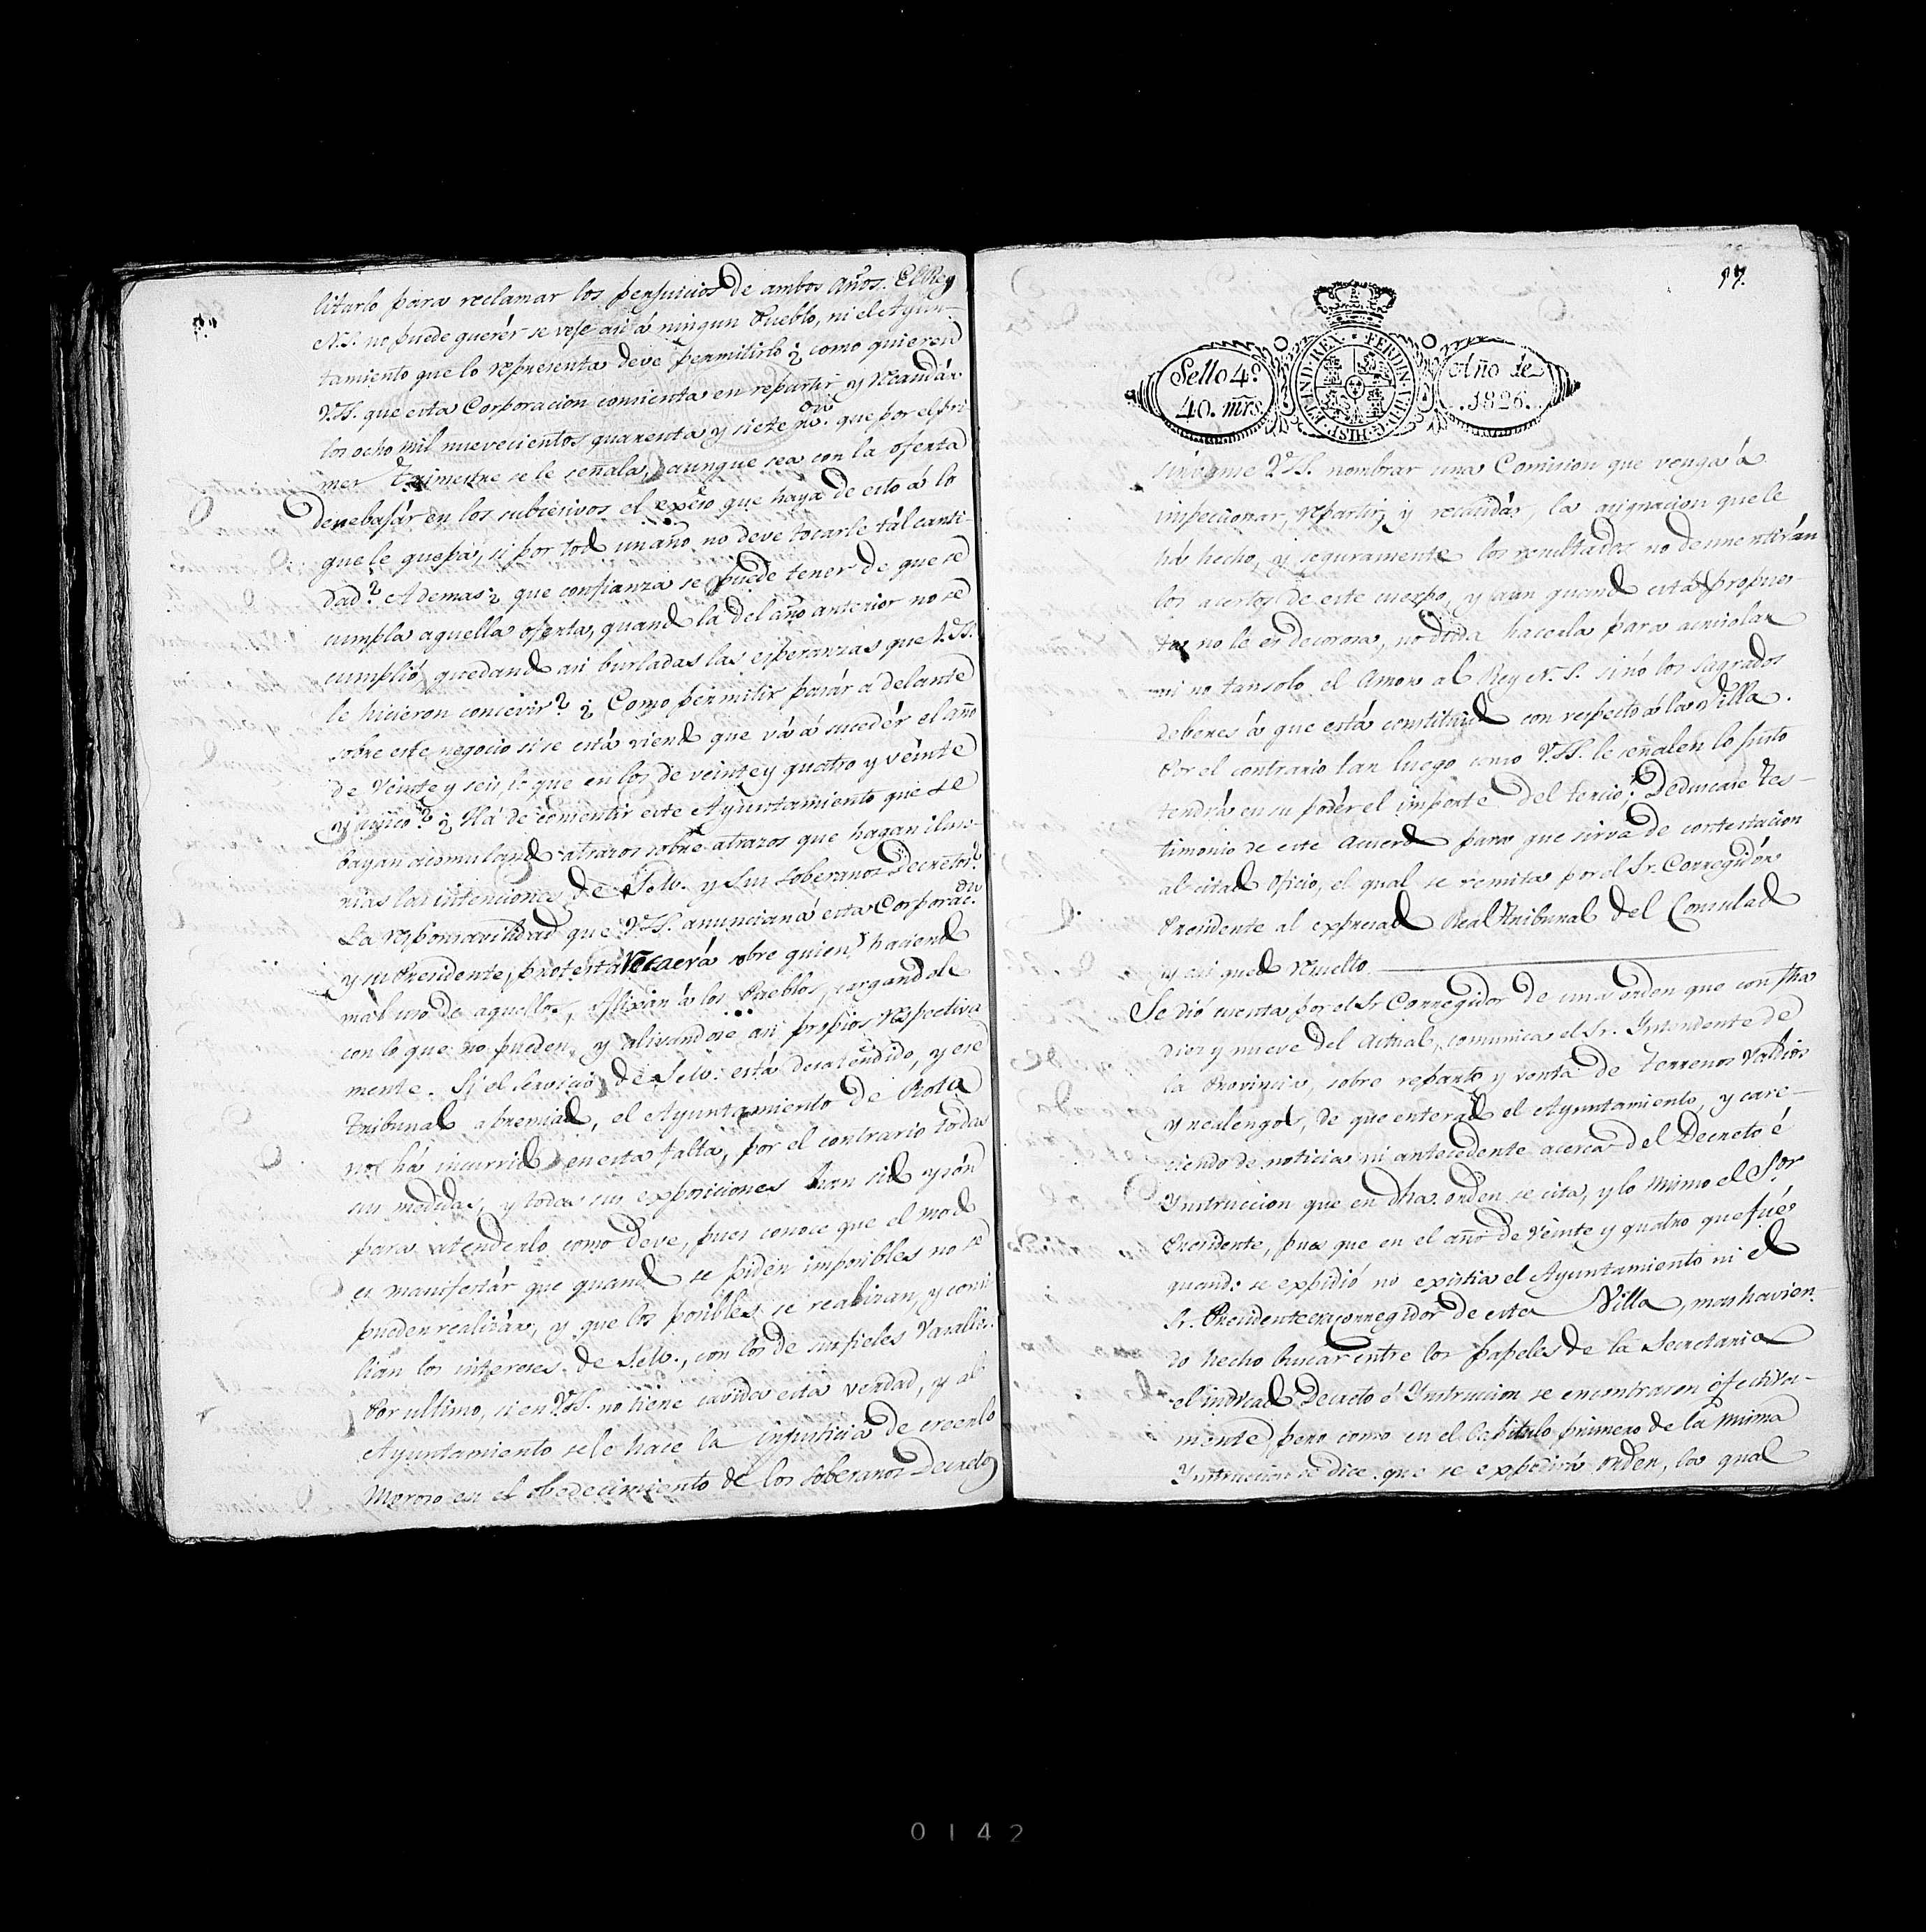 litarlo para reclamar los perjuicios de ambos años. El Rey
N.S. no puede querér se veje asi á ningun Pueblo, ni el Ayun-
tamiento que lo representa deve permitirlo ¿ como quieren
V.SS. que esta Corporacion consienta en repartir y recaudár
los ocho mil nuevecientos quarenta y siete rr.on que por el pri
mer trimestre se le señala, aunque sea con la oferta
de rebajár en los subcesivos el exceso que haya de esto á lo
que le quepa, si por todo un año no deve tocarle tál canti-
dad? Ademas ¿ que confianza se puede tener de que se
cumpla aquella oferta, quando la del año anterior no se
cumplió, quedando asi burladas las esperanzas que V.SS.
le hicieron concevir? ¿ Como permitir parár adelante
sobre este negocio si se está viendo que vá á sucedér el año
de veinte y seis, lo que en los de veinte y quatro y veinte
y cinco? ¿ Há de consentir este Ayuntamiento que se
bayan acumulando atrazos sobre atrazos que hagan iluso-
rias las intenciones de S.M. y sus soberanos Decretos?
La responsavilidad que V.SS. anuncian á esta Corporac.on
y su Presidente, protesta recaerá sobre quien haciendo
mál uso de aquellos, aflixan á los Pueblos, cargandole
con lo que no pueden, y alivandose asi propios respectiva
mente. Si el servicio de S.M. está desatendido, y ese
Tribunal apremiado, el Ayuntamiento de Rota
no há incurrido en esta falta, por el contrario todas
sus medidas, y todas sus exposiciones han sido y són
para atenderlo como deve, pues conoce que el modo
es manifestár que quando se piden imposibles no se
pueden realizár, y que los posibles se realizan, y conci
lian los intereses de S.M., con los de sus fieles Vasallos.
Por ultimo, si en V.SS. no tiene cavida esta verdad, y al
Ayuntamiento se le hace la injusticia de creerlo
moroso en el obedecimiento de los soberanos Decretos
97.
Sello 4.º
40. mrs.
FERDIN.VII.D.G.HISP.ET IND.REX
Año de
1826.
sirvanse V.SS. nombrar una Comision que venga á
inspeccionar, repartir, y recaudár, la asignacion que le
há hecho, y seguramente los resultados no desmentirán
los asertos de este cuerpo, y aun quando esta propues-
ta no le es decorosa, no duda hacerla para acrisolar
asi no tan solo el Amor al Rey N.S. sinó los sagrados
deberes á que está constituido con respecto á la Villa.
Por el contrario tan luego como V.SS. le señalen lo justo
tendrán en su podér el importe del tercio. Deduscase tes-
timonio de este acuerdo para que sirva de contestacion
al citado oficio, el qual se remita por el Sr. Corregidór
Presidente al expresado Real Tribunal del Consulado
y asi quedó resuelto
Se dió cuenta por el Sr. Corregidor de una orden que con fha
diez y nueve del Actual, comunica el Sr. Intendente de
la Provincia, sobre reparto y venta de terrenos Valdios
y realengos, de que enterado el Ayuntamiento, y care-
ciendo de noticia ni antecedente acerca del Decreto é
Ynstruccion que en dha. orden se cita, y lo mismo el S.or
Presidente, pues que en el año de veinte y quatro que fué
quando se expidió no existia el Ayuntamiento ni el
Sr. Presidente era corregidor de esta Villa, mas havien-
do hecho buscar entre los papeles de la Secretaria
el indicado Decreto é Ynstruccion se encontraron efectiva-
mente, pero como en el Capitulo primero de la misma
Ynstruccion se dice que se expedirá orden, la qual
0142